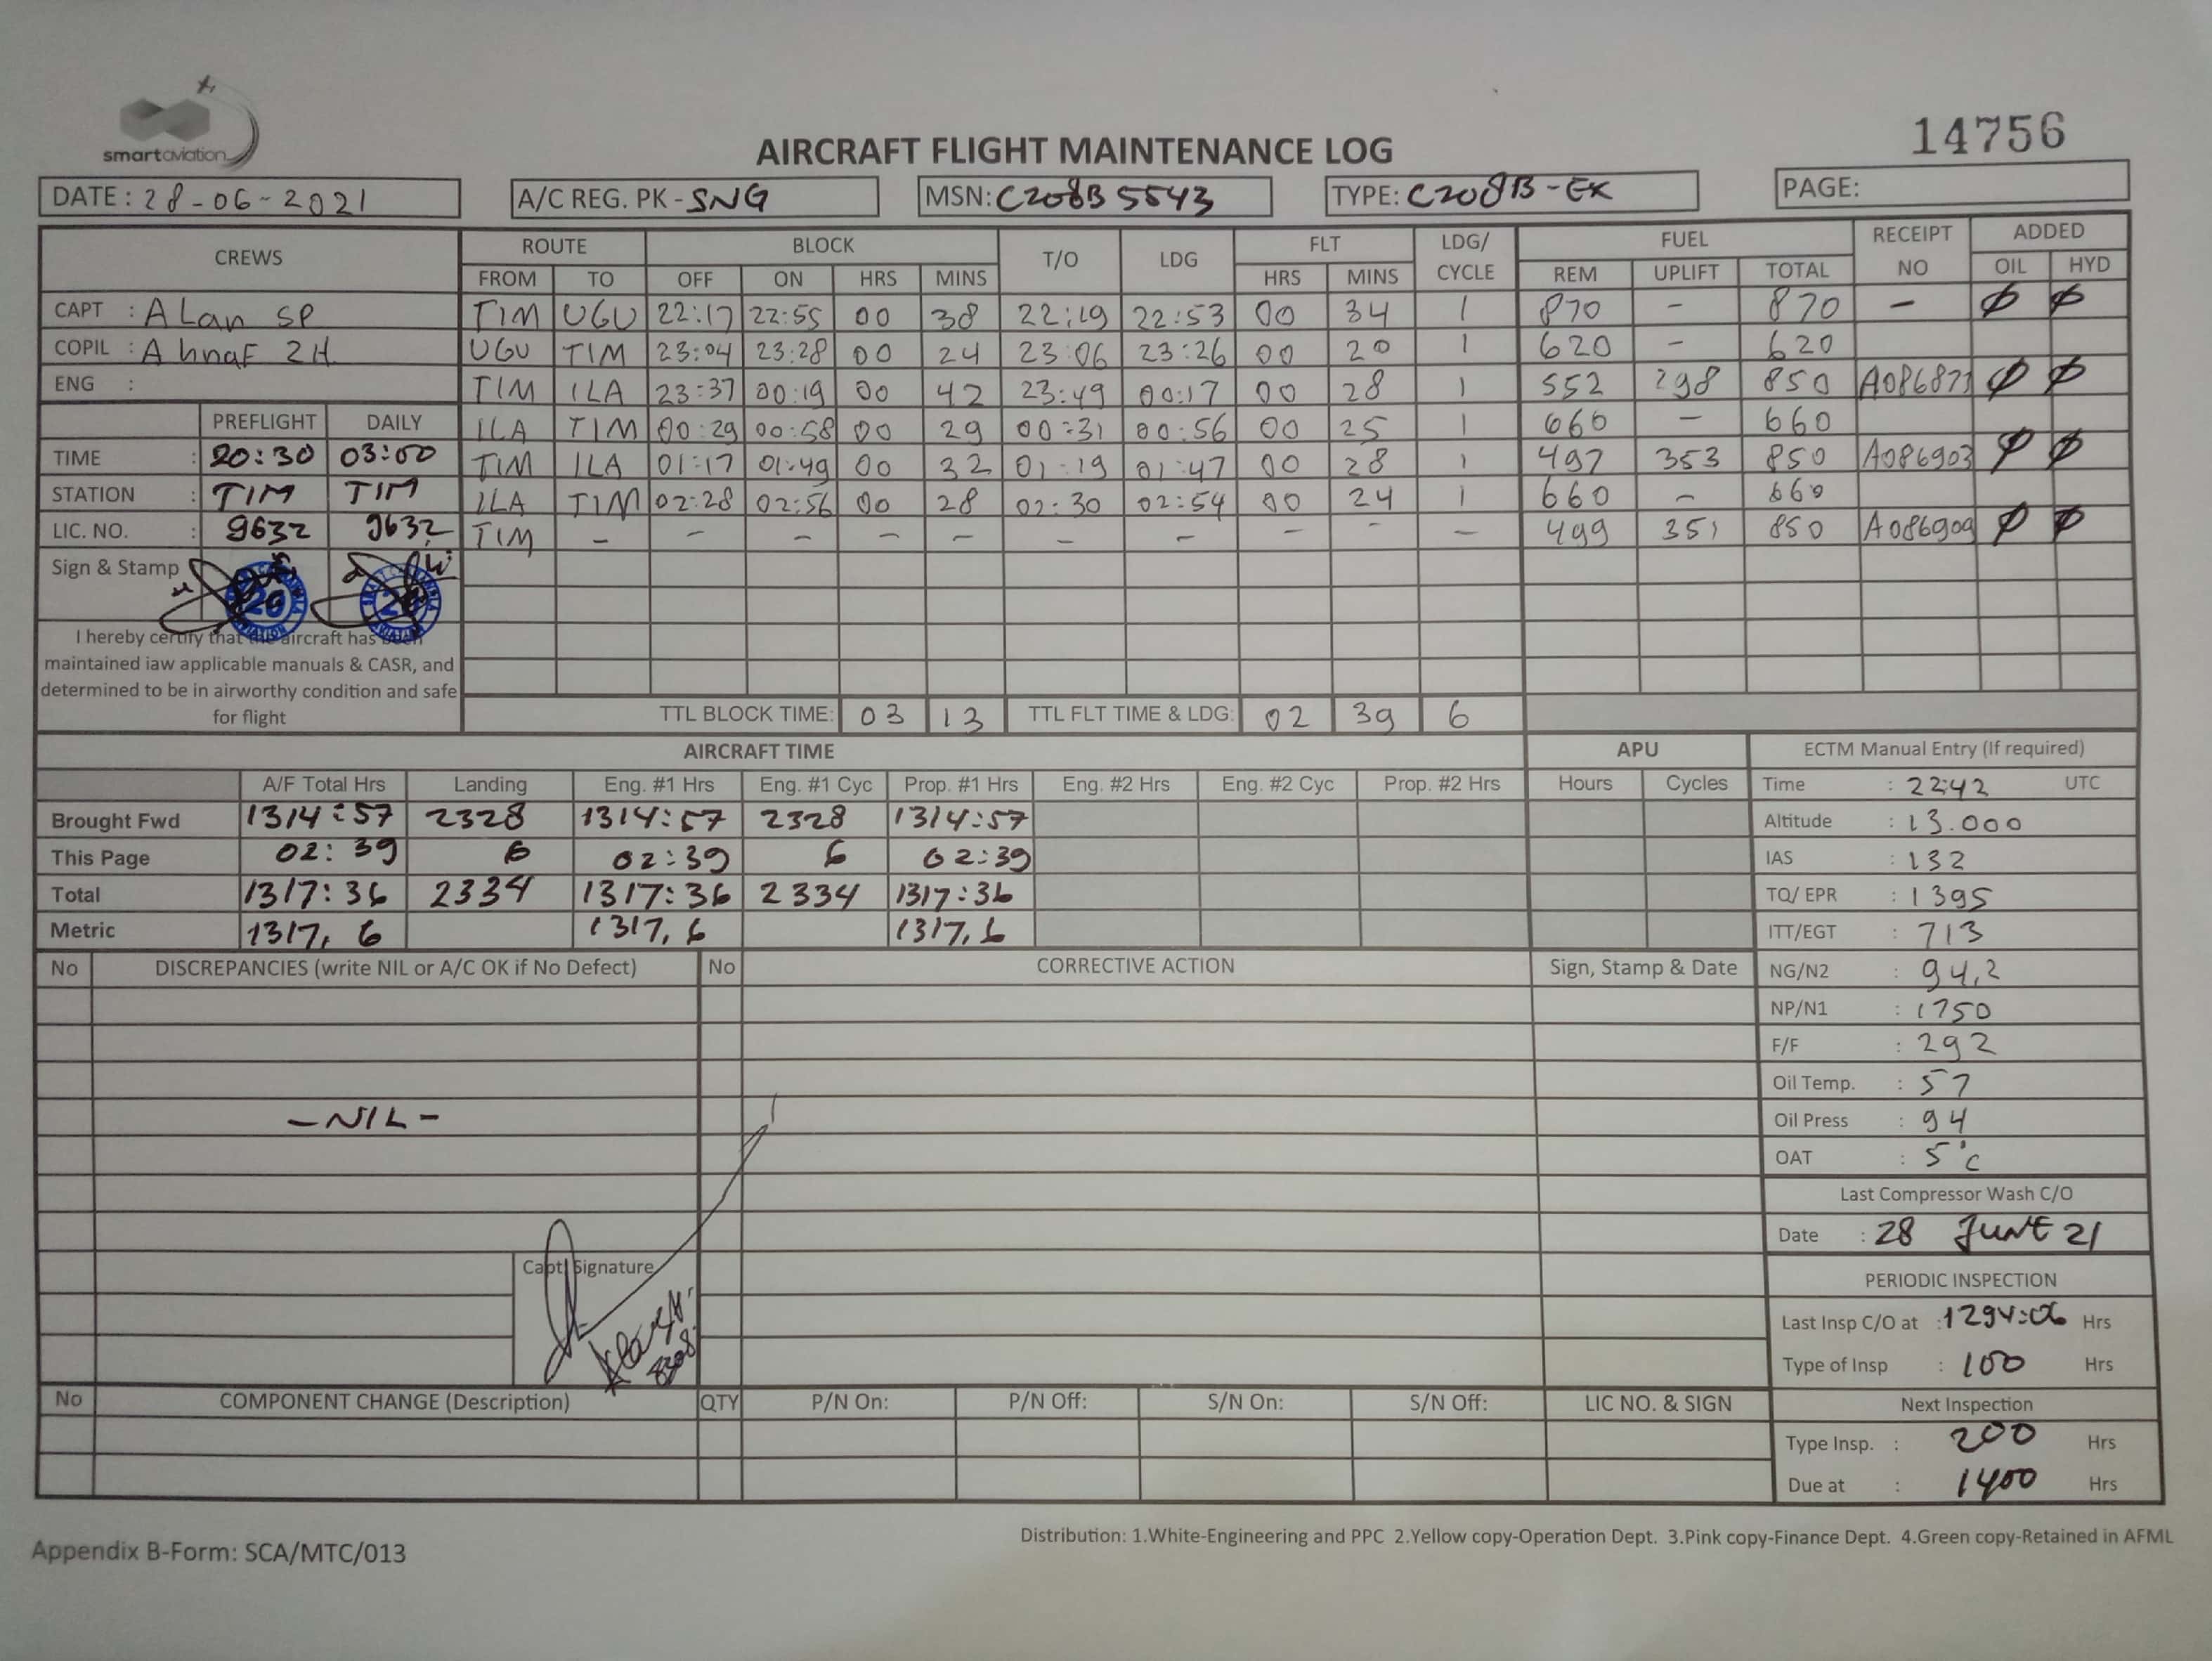 smartaviation
14756
AIRCRAFT FLIGHT MAINTENANCE LOG
DATE : 28-06-2021 A/C REG. PK - SNG MSN: C208B 5543 TYPE: C208B - EX PAGE:
CREWS ROUTE BLOCK T/O LDG FLT LDG/ CYCLE FUEL RECEIPT NO ADDED
FROM TO OFF ON HRS MINS HRS MINS REM UPLIFT TOTAL OIL HYD
CAPT : ALan SP TIM UGU 22:17 22:55 00 38 22:19 22:53 00 34 1 870 - 870 - Ø Ø
COPIL : AhnaF ZH UGU TIM 23:04 23:28 00 24 23:06 23:26 00 20 1 620 - 620
ENG : TIM ILA 23:37 00:19 00 42 23:49 00:17 00 28 1 552 298 850 Ø Ø
PREFLIGHT DAILY ILA TIM 00:29 00:58 00 29 00:31 00:56 00 25 1 660 - 660
TIME : 20:30 03:00 TIM ILA 01:17 01:49 00 32 01:19 01:47 00 28 1 497 353 850 A086903 Ø Ø
STATION : TIM TIM ILA TIM 02:28 02:56 00 28 02:30 02:54 00 24 1 660 - 660
LIC. NO. : 9632 9632 TIM - - - - - - - - - - 499 351 850 A086909 Ø Ø
Sign & Stamp
I hereby certify that the aircraft has been
maintained iaw applicable manuals & CASR, and
determined to be in airworthy condition and safe
for flight
TTL BLOCK TIME: 03 13 TTL FLT TIME & LDG: 02 39 6
AIRCRAFT TIME APU ECTM Manual Entry (If required)
A/F Total Hrs Landing Eng. #1 Hrs Eng. #1 Cyc Prop. #1 Hrs Eng. #2 Hrs Eng. #2 Cyc Prop. #2 Hrs Hours Cycles Time : 22:42 UTC
Brought Fwd 1314:57 2328 1314:57 2328 1314:57 Altitude : 13.000
This Page 02:39 6 02:39 6 02:39 IAS : 132
Total 1317:36 2334 1317:36 2334 1317:36 TQ/ EPR : 1395
Metric 1317,6 1317,6 1317,6 ITT/EGT : 713
No DISCREPANCIES (write NIL or A/C OK if No Defect) No CORRECTIVE ACTION Sign, Stamp & Date NG/N2 : 94,2
NP/N1 : 1750
F/F : 292
Oil Temp. : 57
- NIL - Oil Press : 94
OAT : 5°C
Last Compressor Wash C/O
Date : 28 JUNE 21
Capt. Signature
PERIODIC INSPECTION
Last Insp C/O at : 1294:06 Hrs
Type of Insp : 100 Hrs
No COMPONENT CHANGE (Description) QTY P/N On: P/N Off: S/N On: S/N Off: LIC NO. & SIGN Next Inspection
Type Insp. : 200 Hrs
Due at : 1400 Hrs
Distribution: 1.White-Engineering and PPC 2.Yellow copy-Operation Dept. 3.Pink copy-Finance Dept. 4.Green copy-Retained in AFML
Appendix B-Form: SCA/MTC/013